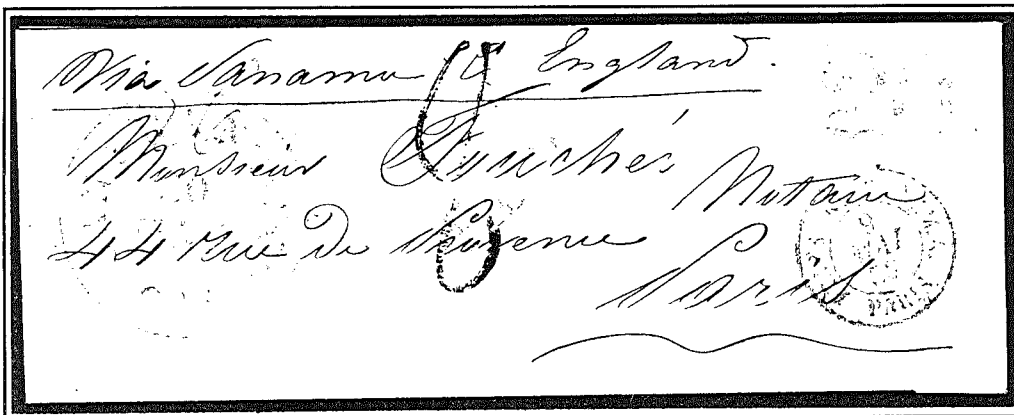 Via Panama & England.
Monsieur Fouchés
Notaire
44 Rue de Provence
Paris